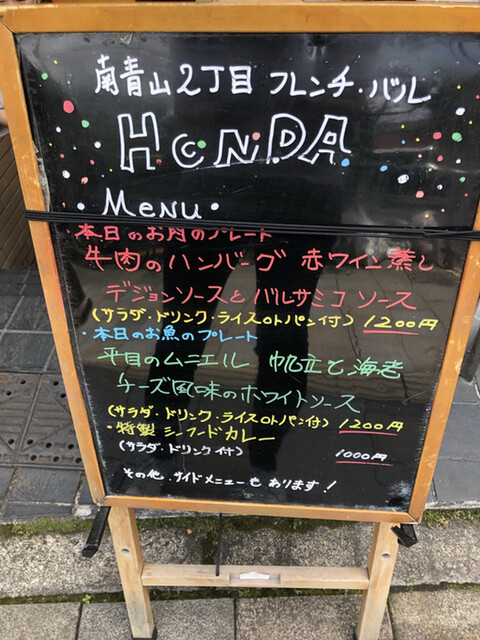 南青山2丁目 フレンチ・バル
HONDA
・MENU・
・本日のお肉のプレート
牛肉のハンバーグ 赤ワイン蒸し
デジョンソースとバルサミコソース
(サラダ・ドリンク・ライスorパン付) 1200円
・本日のお魚のプレート
平目のムニエル 帆立と海老
チーズ風味のホワイトソース
(サラダ・ドリンク・ライスorパン付) 1200円
・特製シーフードカレー
(サラダ・ドリンク付) 1000円
その他、サイドメニューもあります!